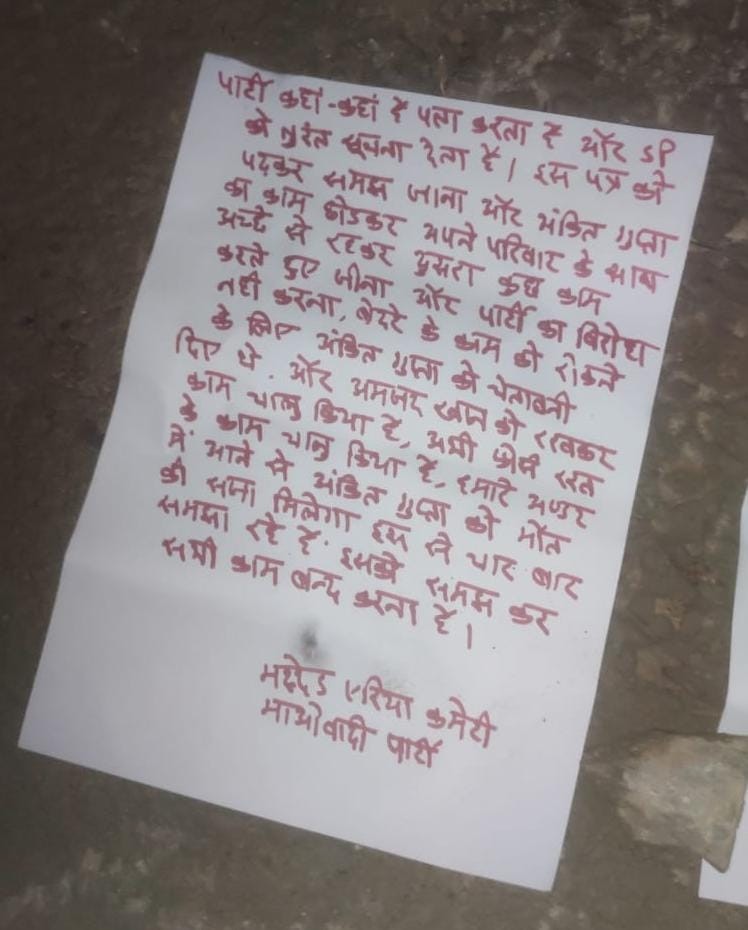 पार्टी कहां-कहां है पता करता है और SP
को तुरंत सूचना देता है। इस पत्र को
पढकर समझ जाना और अंकित गुप्ता
का काम छोडकर अपने परिवार के साथ
अच्छे से रहकर दुसरा कुछ काम
करते हुए जीना और पार्टी का विरोध
नही करना, के काम को रोकने
के लिए अंकित गुप्ता को चेतावनी
दिए थे. और अमजद खान को रखकर
काम चालु किया है, अभी सन
के काम चालु किया है, हमारे अण्डर
में आने से अंकित गुप्ता को मौत
की सजा मिलेगा इस से चार बार
समझा रहे हैं. इसको समझ कर
सभी काम बन्द करना है।
मद्देड एरिया कमेटी
माओवादी पार्टी